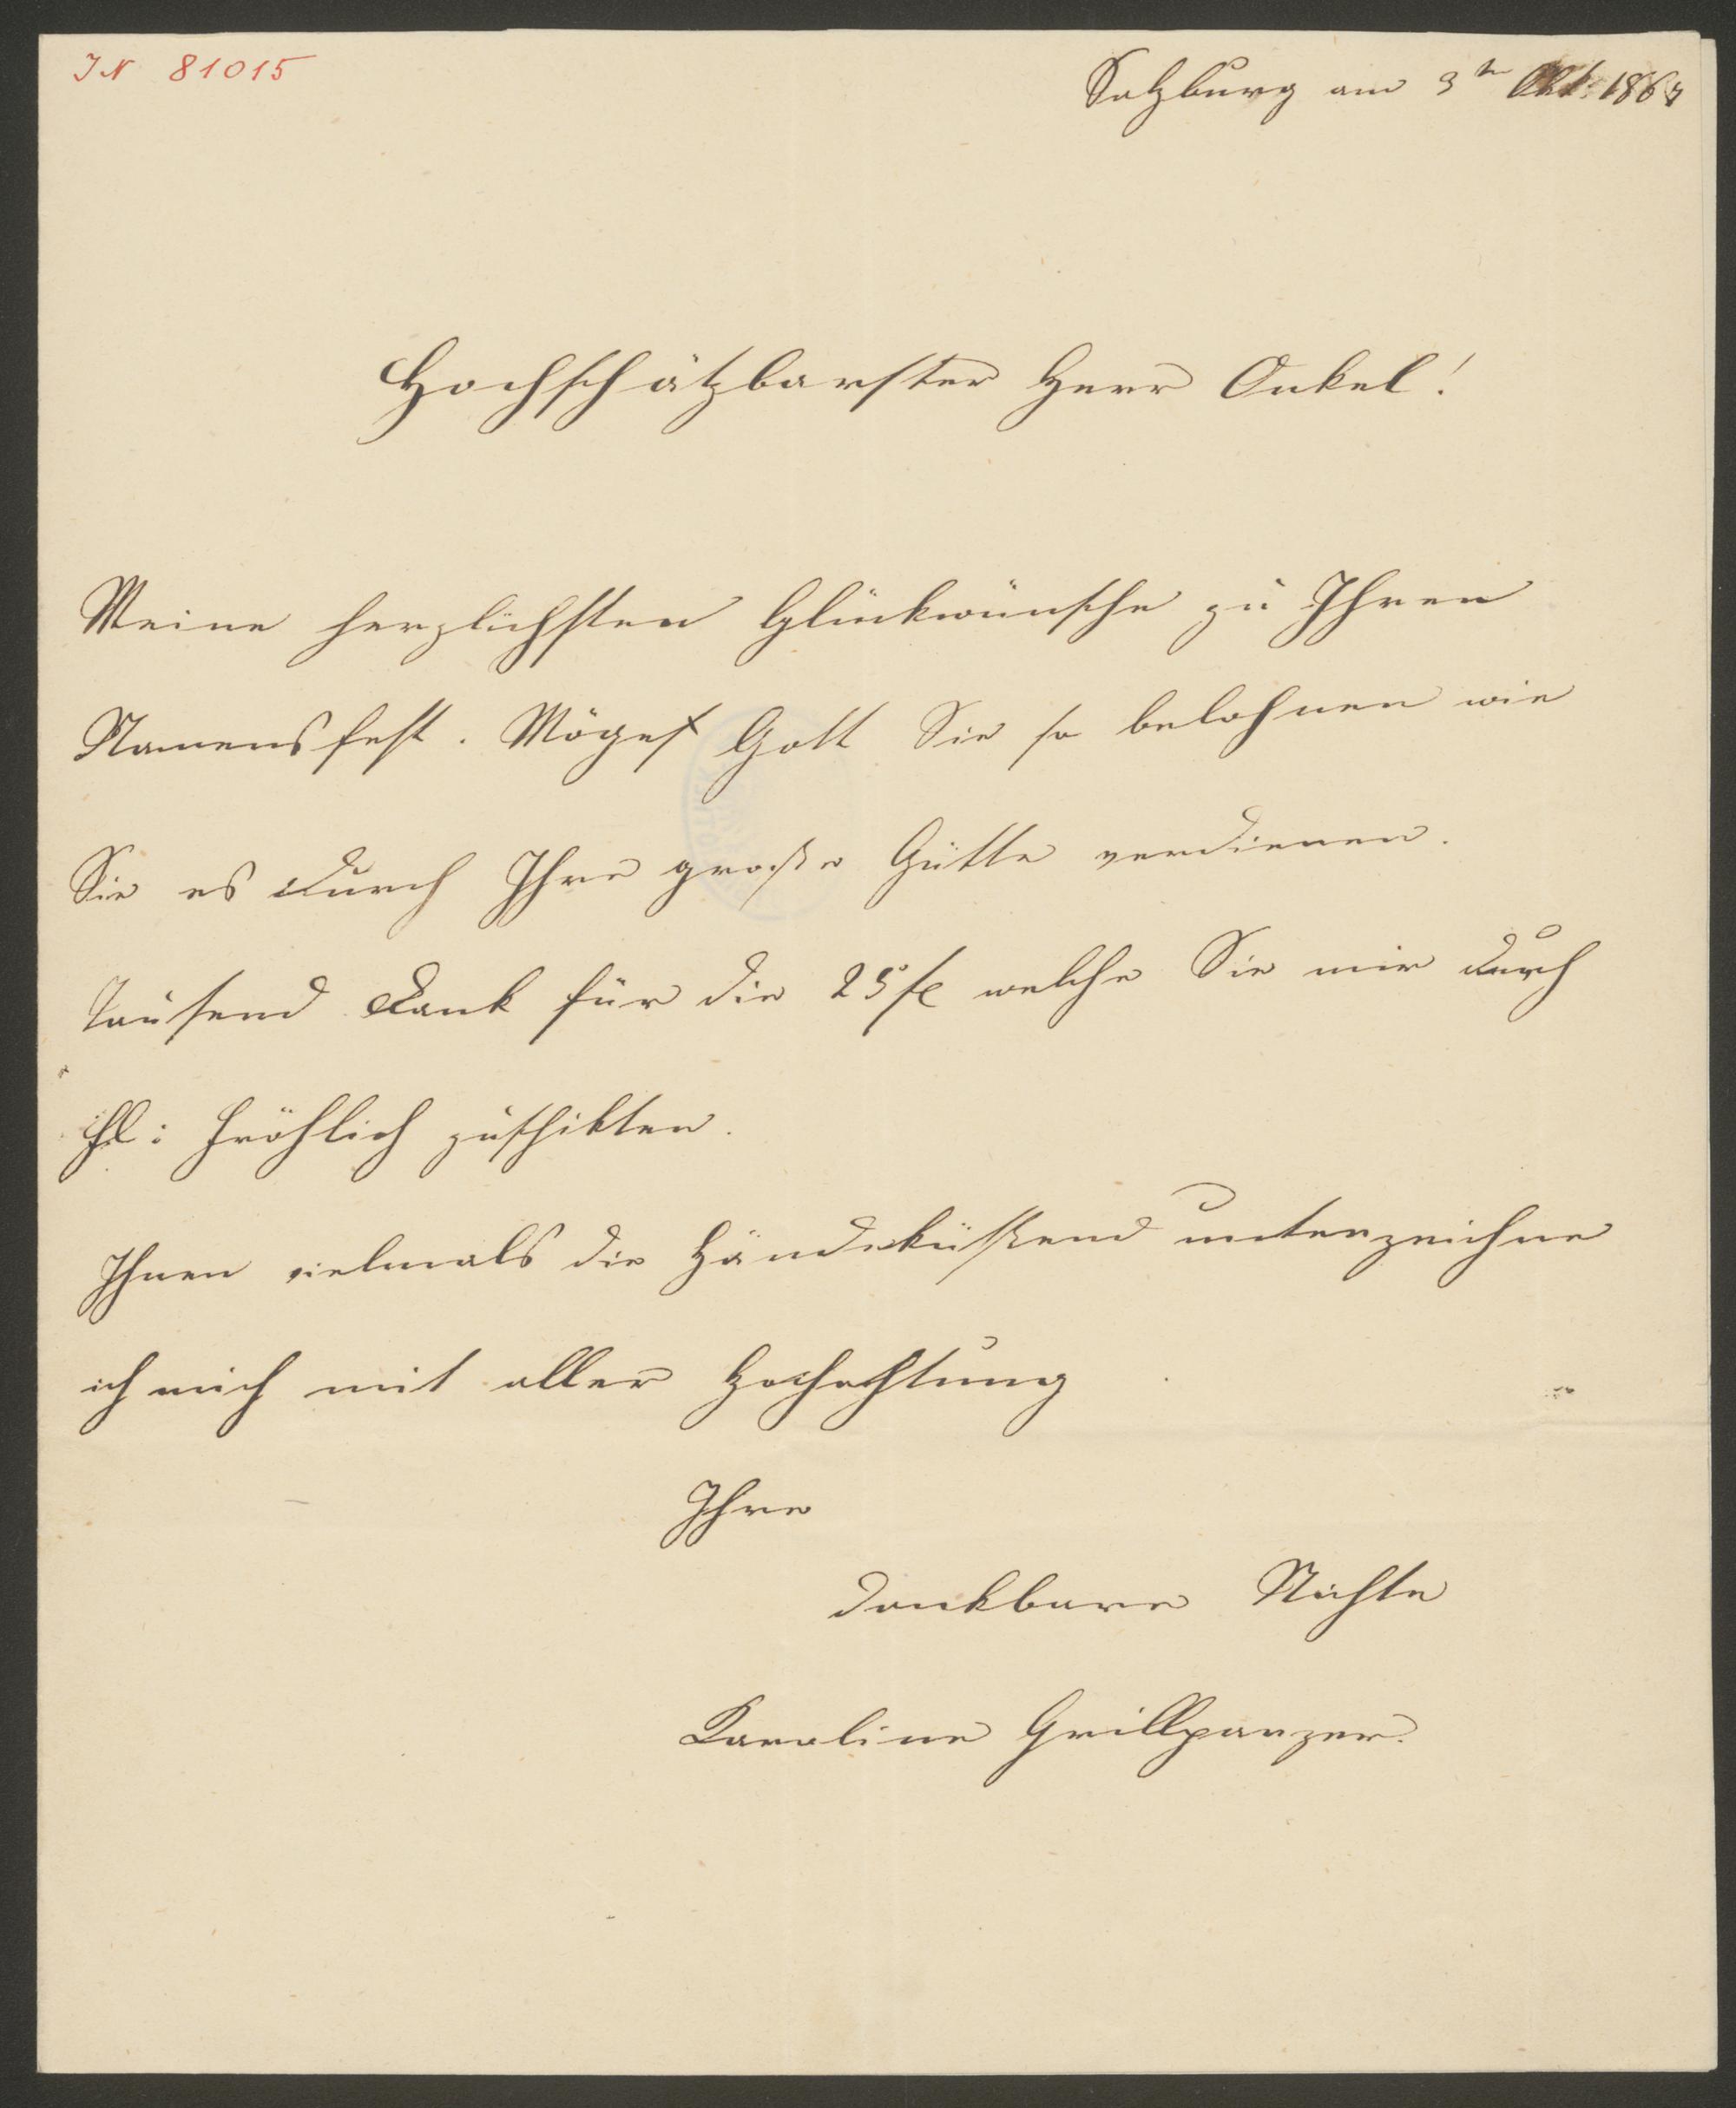 IN 81015
Salzburg am 3ten Okt. 1867
Hochschätzbarster Herr Onkel!
Meine herzlichsten Glückwünsche zu Ihren
Namensfest. Möge Gott Sie so belohnen wie
Sie es durch Ihre große Gütte verdienen.
Tausend Dank für die 25 fl welche Sie mir durch
Frl: Fröhlich zuschikten.
Ihnen vielmals die Händeküßend unterzeichne
ich mich mit aller Hochachtung
Ihre
dankbare Nichte
Karoline Grillparzer.